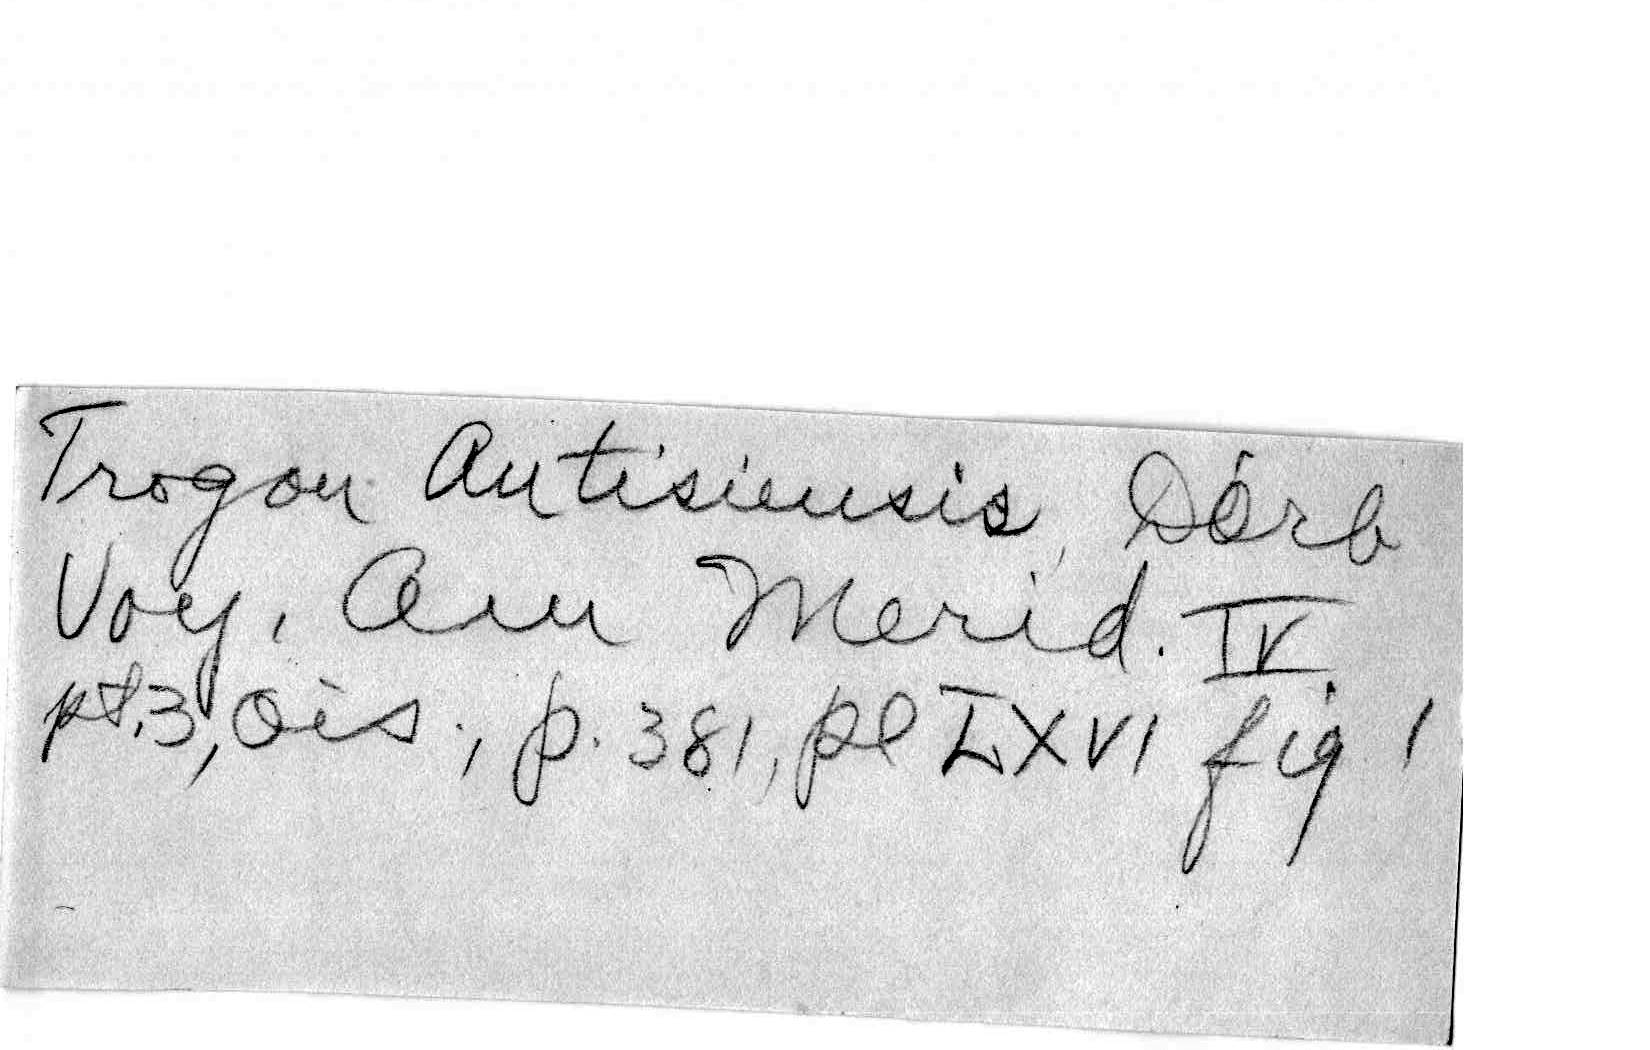 Trogon Antisiensis, D'orb
Voy. Am Merid. IV
pt.3, Ois., p. 381, pl LXVI fig 1